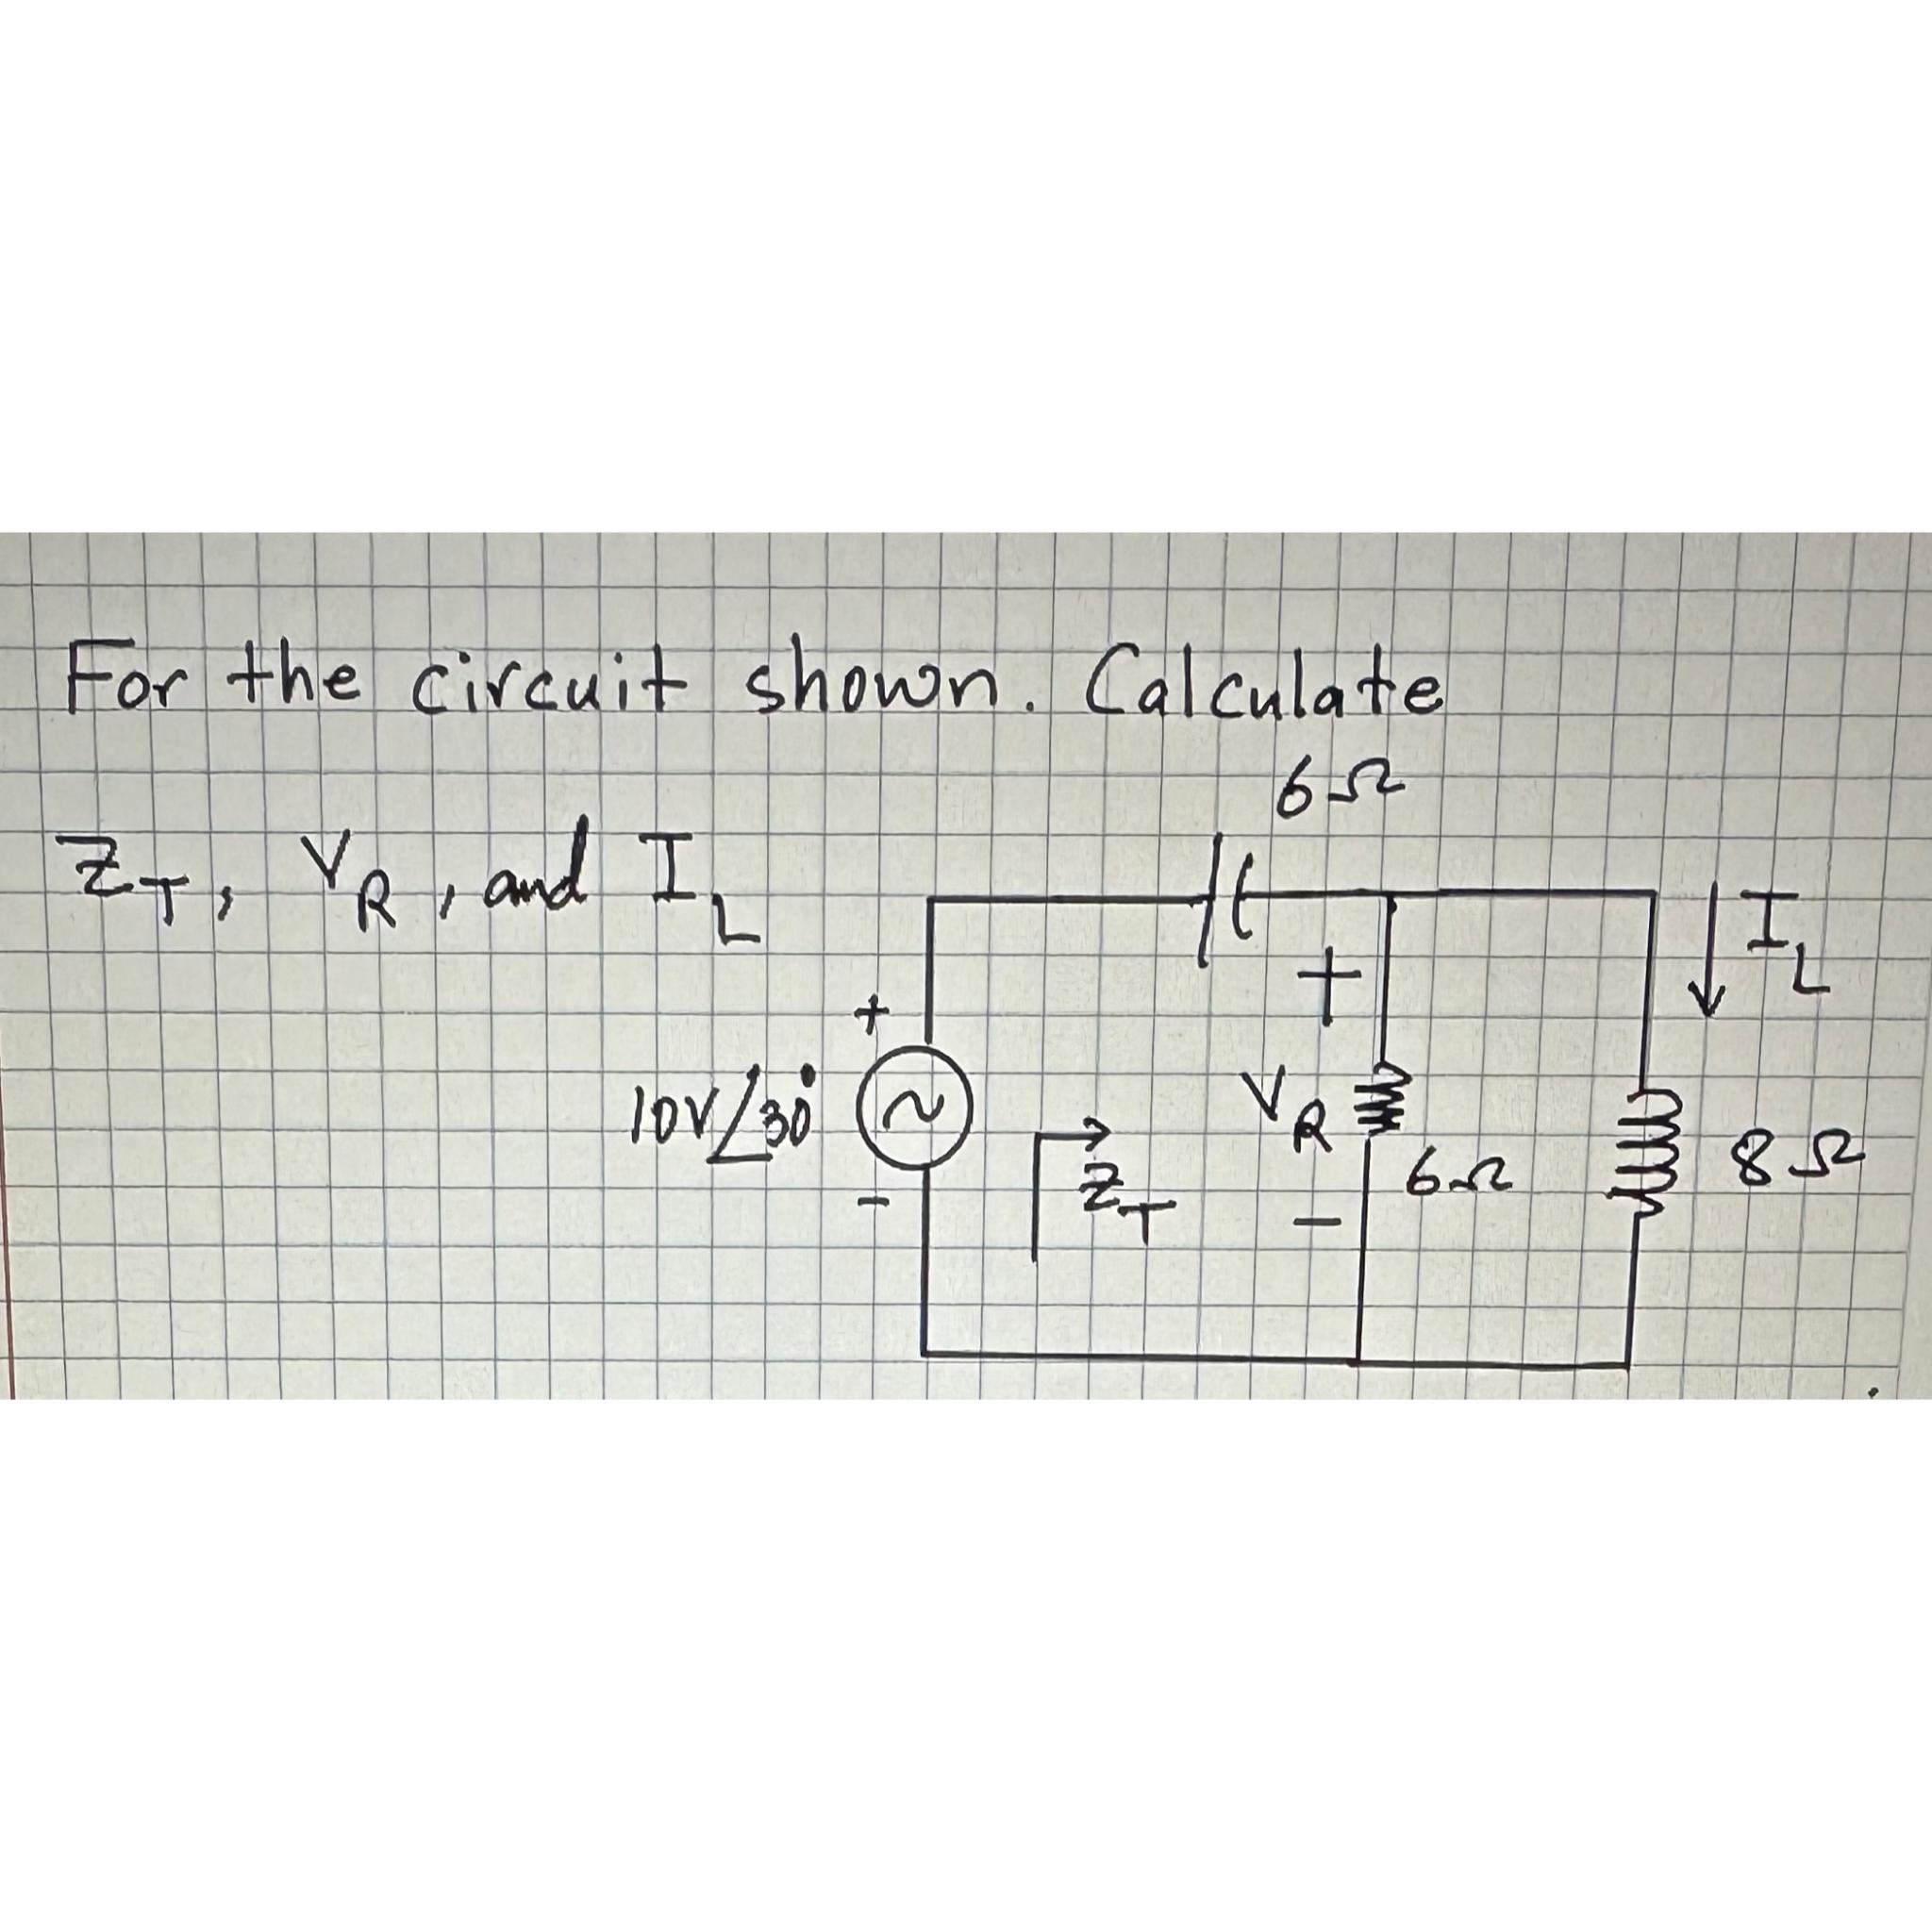 For the circuit shown. Calculate
6Ω
Z_T, V_R, and I_L
I_L
+
+
10V∠30°
V_R
Z_T
6Ω
8Ω
-
-